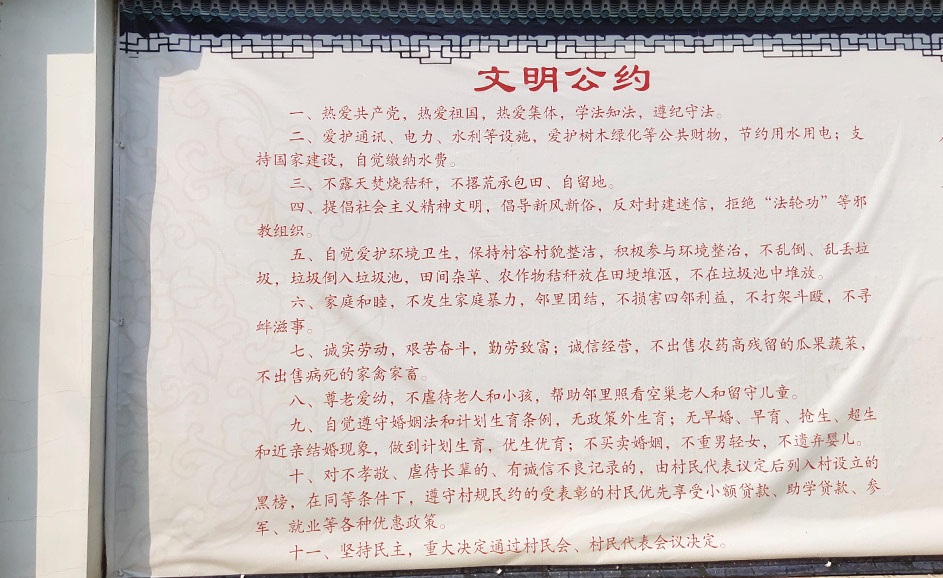 文明公约
一、热爱共产党，热爱祖国，热爱集体，学法知法，遵纪守法。
二、爱护通讯、电力、水利等设施，爱护树木绿化等公共财物，节约用水用电；支
持国家建设，自觉缴纳水费。
三、不露天焚烧秸秆，不撂荒承包田、自留地。
四、提倡社会主义精神文明，倡导新风新俗，反对封建迷信，拒绝“法轮功”等邪
教组织。
五、自觉爱护环境卫生，保持村容村貌整洁，积极参与环境整治，不乱倒、乱丢垃
圾，垃圾倒入垃圾池，田间杂草、农作物秸秆放在田埂堆沤，不在垃圾池中堆放。
六、家庭和睦，不发生家庭暴力，邻里团结，不损害四邻利益，不打架斗殴，不寻
衅滋事。
七、诚实劳动，艰苦奋斗，勤劳致富；诚信经营，不出售农药高残留的瓜果蔬菜，
不出售病死的家禽家畜。
八、尊老爱幼，不虐待老人和小孩，帮助邻里照看空巢老人和留守儿童。
九、自觉遵守婚姻法和计划生育条例，无政策外生育；无早婚、早育、抢生、超生
和近亲结婚现象，做到计划生育，优生优育；不买卖婚姻，不重男轻女，不遗弃婴儿。
十、对不孝敬、虐待长辈的、有诚信不良记录的，由村民代表议定后列入村设立的
黑榜，在同等条件下，遵守村规民约的受表彰的村民优先享受小额贷款、助学贷款、参
军、就业等各种优惠政策。
十一、坚持民主，重大决定通过村民会、村民代表会议决定。